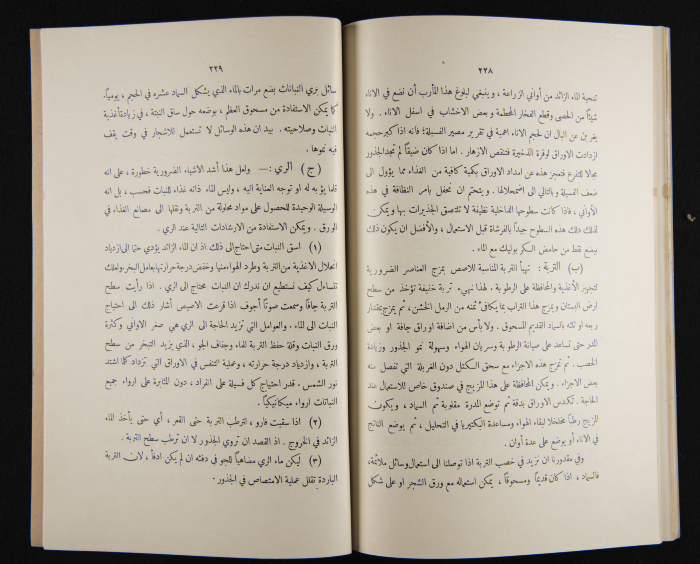 ٢٣٨
تنحية الماء الزائد من أواني الزراعة ، وينبغي لبلوغ هذا المأرب أن نضع في الاناء
شيئاً من الحصى وقطع الفخار المحطمة وبعض الاخشاب في اسفل الاناء . ولا
يغربن عن البال ان لحجم الاناء اهمية في تقرير مصير الفسيلة؛ فانه اذا كبر حجمه
ازدادت الاوراق لوفرة الذخيرة فتنقص الازهار . اما اذا كان ضيقاً لم تجد الجذور
مجالا للتفرع فتعجز هذه عن امداد الاوراق بكمية كافية من الغذاء مما يؤول الى
ضعف الفسيلة وبالتالي الى اضمحلالها . ويتحتم ان نحفل بامر النظافة في هذه
الأواني ، فاذا كانت سطوحها الداخلية نظيفة لا تلتصق الجذيرات بها ويمكن
لذلك دلك هذه السطوح جيداً بالفرشاة قبل الاستعمال ، والأفضل ان يكون ذلك
ببضع نقط من حامض الكربوليك مع الماء .
(ب) التربة : تهيأ التربة المناسبة للاصص بمزج العناصر الضرورية
لتجهيز الأغذية والمحافظة على الرطوبة . لهذا تهيء تربة خفيفة تؤخذ من سطح
ارض البستان ويمزج هذا التراب بما يكافئ ثمنه من الرمل الخشن، ثم يمزج بمقدار
ربعه او ثلثه بالسماد القديم المسحوق . ولا بأس من اضافة اوراق جافة او بعض
المدر حتى تساعد على صيانة الرطوبة وسريان الهواء وسهولة نمو الجذور وزيادة
الخصب . ثم تمزج هذه الاجزاء مع سحق الكتل دون الغربلة التي تفصل منه
بعض الاجزاء . ويمكن المحافظة على هذا المزيج في صندوق خاص للاستعمال عند
الحاجة . تكدس الاوراق بدقة ثم توضع المدرة مقلوبة ثم السماد ، ويكون
المزيج رطباً مخلخلا لبقاء الهواء ومساعدة البكتيريا في التحليل ، ثم يوضع الناتج
في الاناء أو يوضع على عدة أوان .
وفي مقدورنا ان نزيد في خصب التربة اذا توصلنا الى استعمال وسائل ملائمة،
فالسماد ، اذا كان قديماً ومسحوقاً ، يمكن استعماله مع ورق الشجر او على شكل
٢٣٩
سائل بري النباتات بضع مرات بالماء الذي يشكل السماد عشره في الحجم ، يومياً.
كما يمكن الاستفادة من مسحوق العظم ، بوضعه حول ساق النبتة ، في زيادة أغذية
النبات وصلاحيته . بيد ان هذه الوسائل لا تستعمل للاشجار في وقت يقف
فيه نموها .
(ج) الري :— ولعل هذا أشد الاشياء الضرورية خطورة ، على انه
قلما يؤبه له او توجه العناية اليه ، وليس الماء ذاته غذاء للنبات فحسب ، بل انه
الوسيلة الوحيدة للحصول على مواد محلولة من التربة ونقلها الى مصانع الغذاء في
الورق . ويمكن الاستفادة من الارشادات التالية عند الري .
(١) اسق النبات متى احتاج الى ذلك اذ ان الماء الزائد يؤدي حتما الى ازدياد
انحلال الاغذية من التربة وطرد الهواء منها وخفض درجة حرارتها بعامل البخر. ولعلك
تتساءل كيف نستطيع ان ندرك ان النبات محتاج الى الري . اذا رأيت سطح
التربة جافاً وسمعت صوتاً أجوف اذا قرعت الاصيص أشار ذلك الى احتياج
النبات الى الماء . والعوامل التي تزيد الحاجة الى الري هي صغر الاواني وكثرة
ورق النبات وقلة حفظ التربة للماء وجفاف الجو ، الذي يزيد التبخر من سطح
التربة ، وازدياد درجة حرارته ، وعملية التنفس في الاوراق التي تزداد كلما اشتد
نور الشمس . قدر احتياج كل فسيلة على انفراد ، دون المثابرة على ارواء جميع
النباتات ارواء ميكانيكياً .
(٢) اذا سقيت فارو ، لترطب التربة حتى القعر ، أي حتى يأخذ الماء
الزائد في الخروج . اذ القصد ان تروي الجذور لا ان ترطب سطح التربة .
(٣) ليكن ماء الري مضاهياً للجو في دفئه ان لم يكن ادفأ ، لان التربة
الباردة تقلل عملية الامتصاص في الجذور .